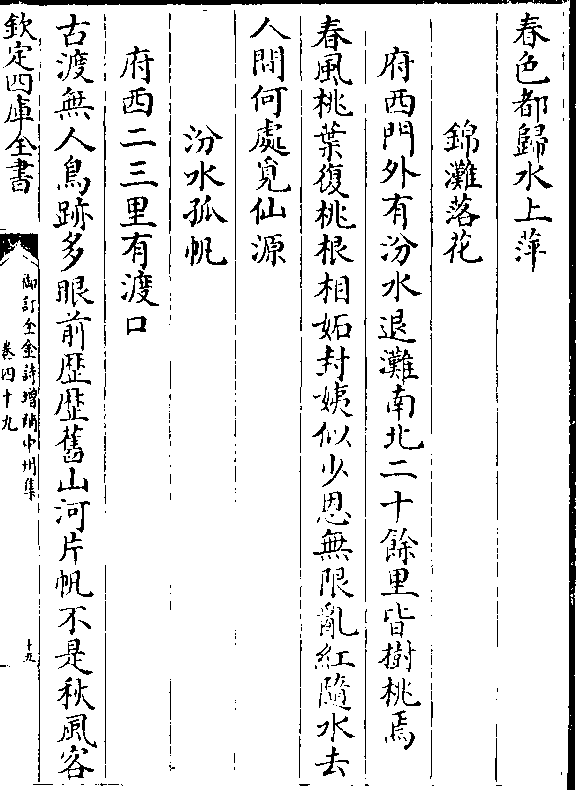 春色都歸水上萍
錦灘落花
府西門外有汾水退灘南北二十餘里皆樹桃焉
春風桃葉復桃根相妬封姨似少恩無限亂紅隨水去
人間何處覓仙源
汾水孤帆
府西二三里有渡口
古渡無人鳥跡多眼前歴歴舊山河片帆不是秋風客
欽定四庫全書
御訂全金詩增補中州集
卷四十九
十九